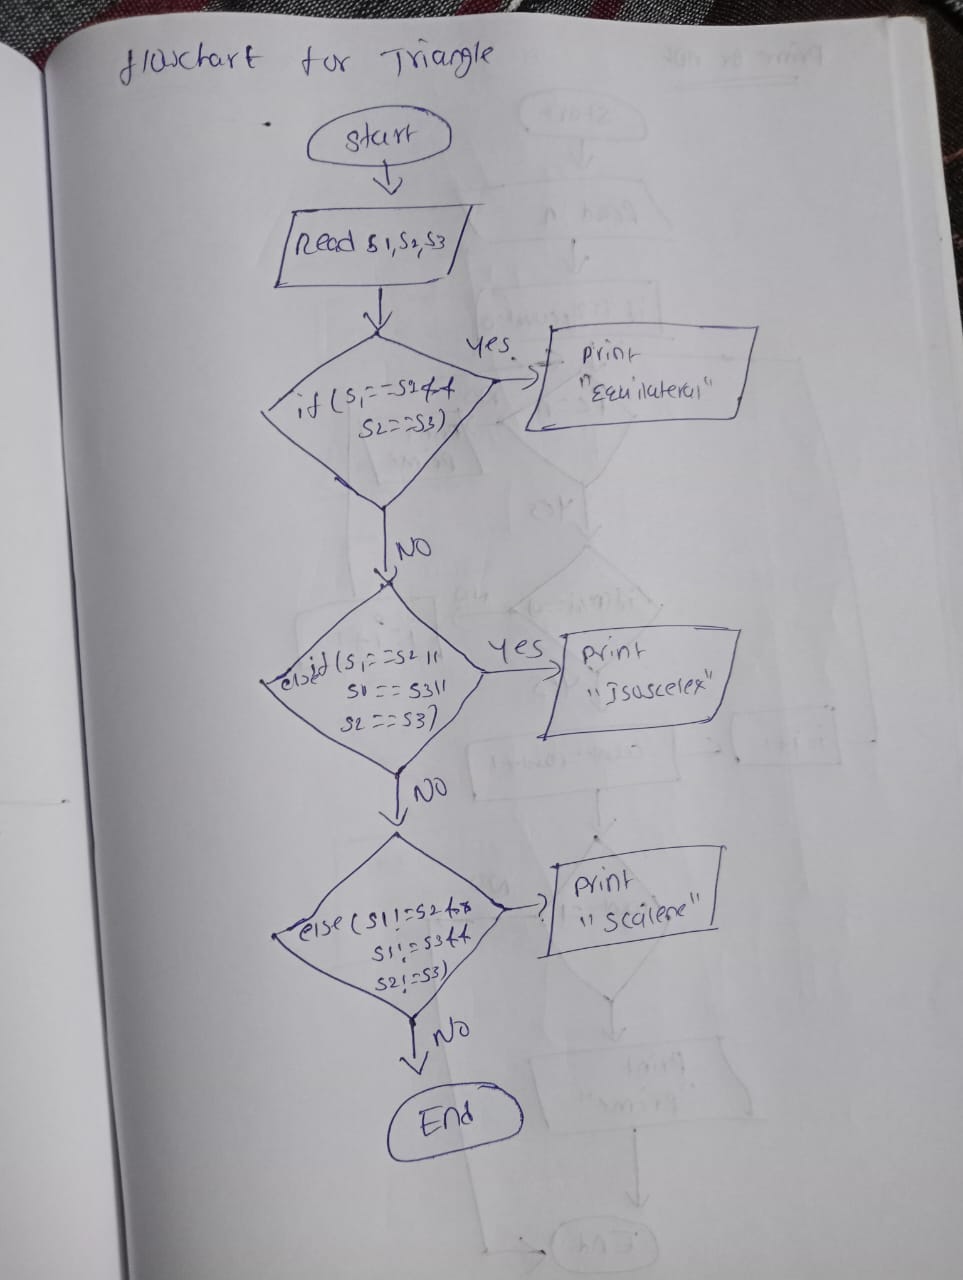 flowchart for Triangle
Start
Read S1,S2,S3
if (S1==S2&&
S2==S3)
yes
print
"Equilateral"
NO
else if (S1==S2||
S1==S3||
S2==S3)
yes
print
"Isoscelex"
NO
else (S1!=S2&&
S1!=S3&&
S2!=S3)
print
"Scalene"
NO
End